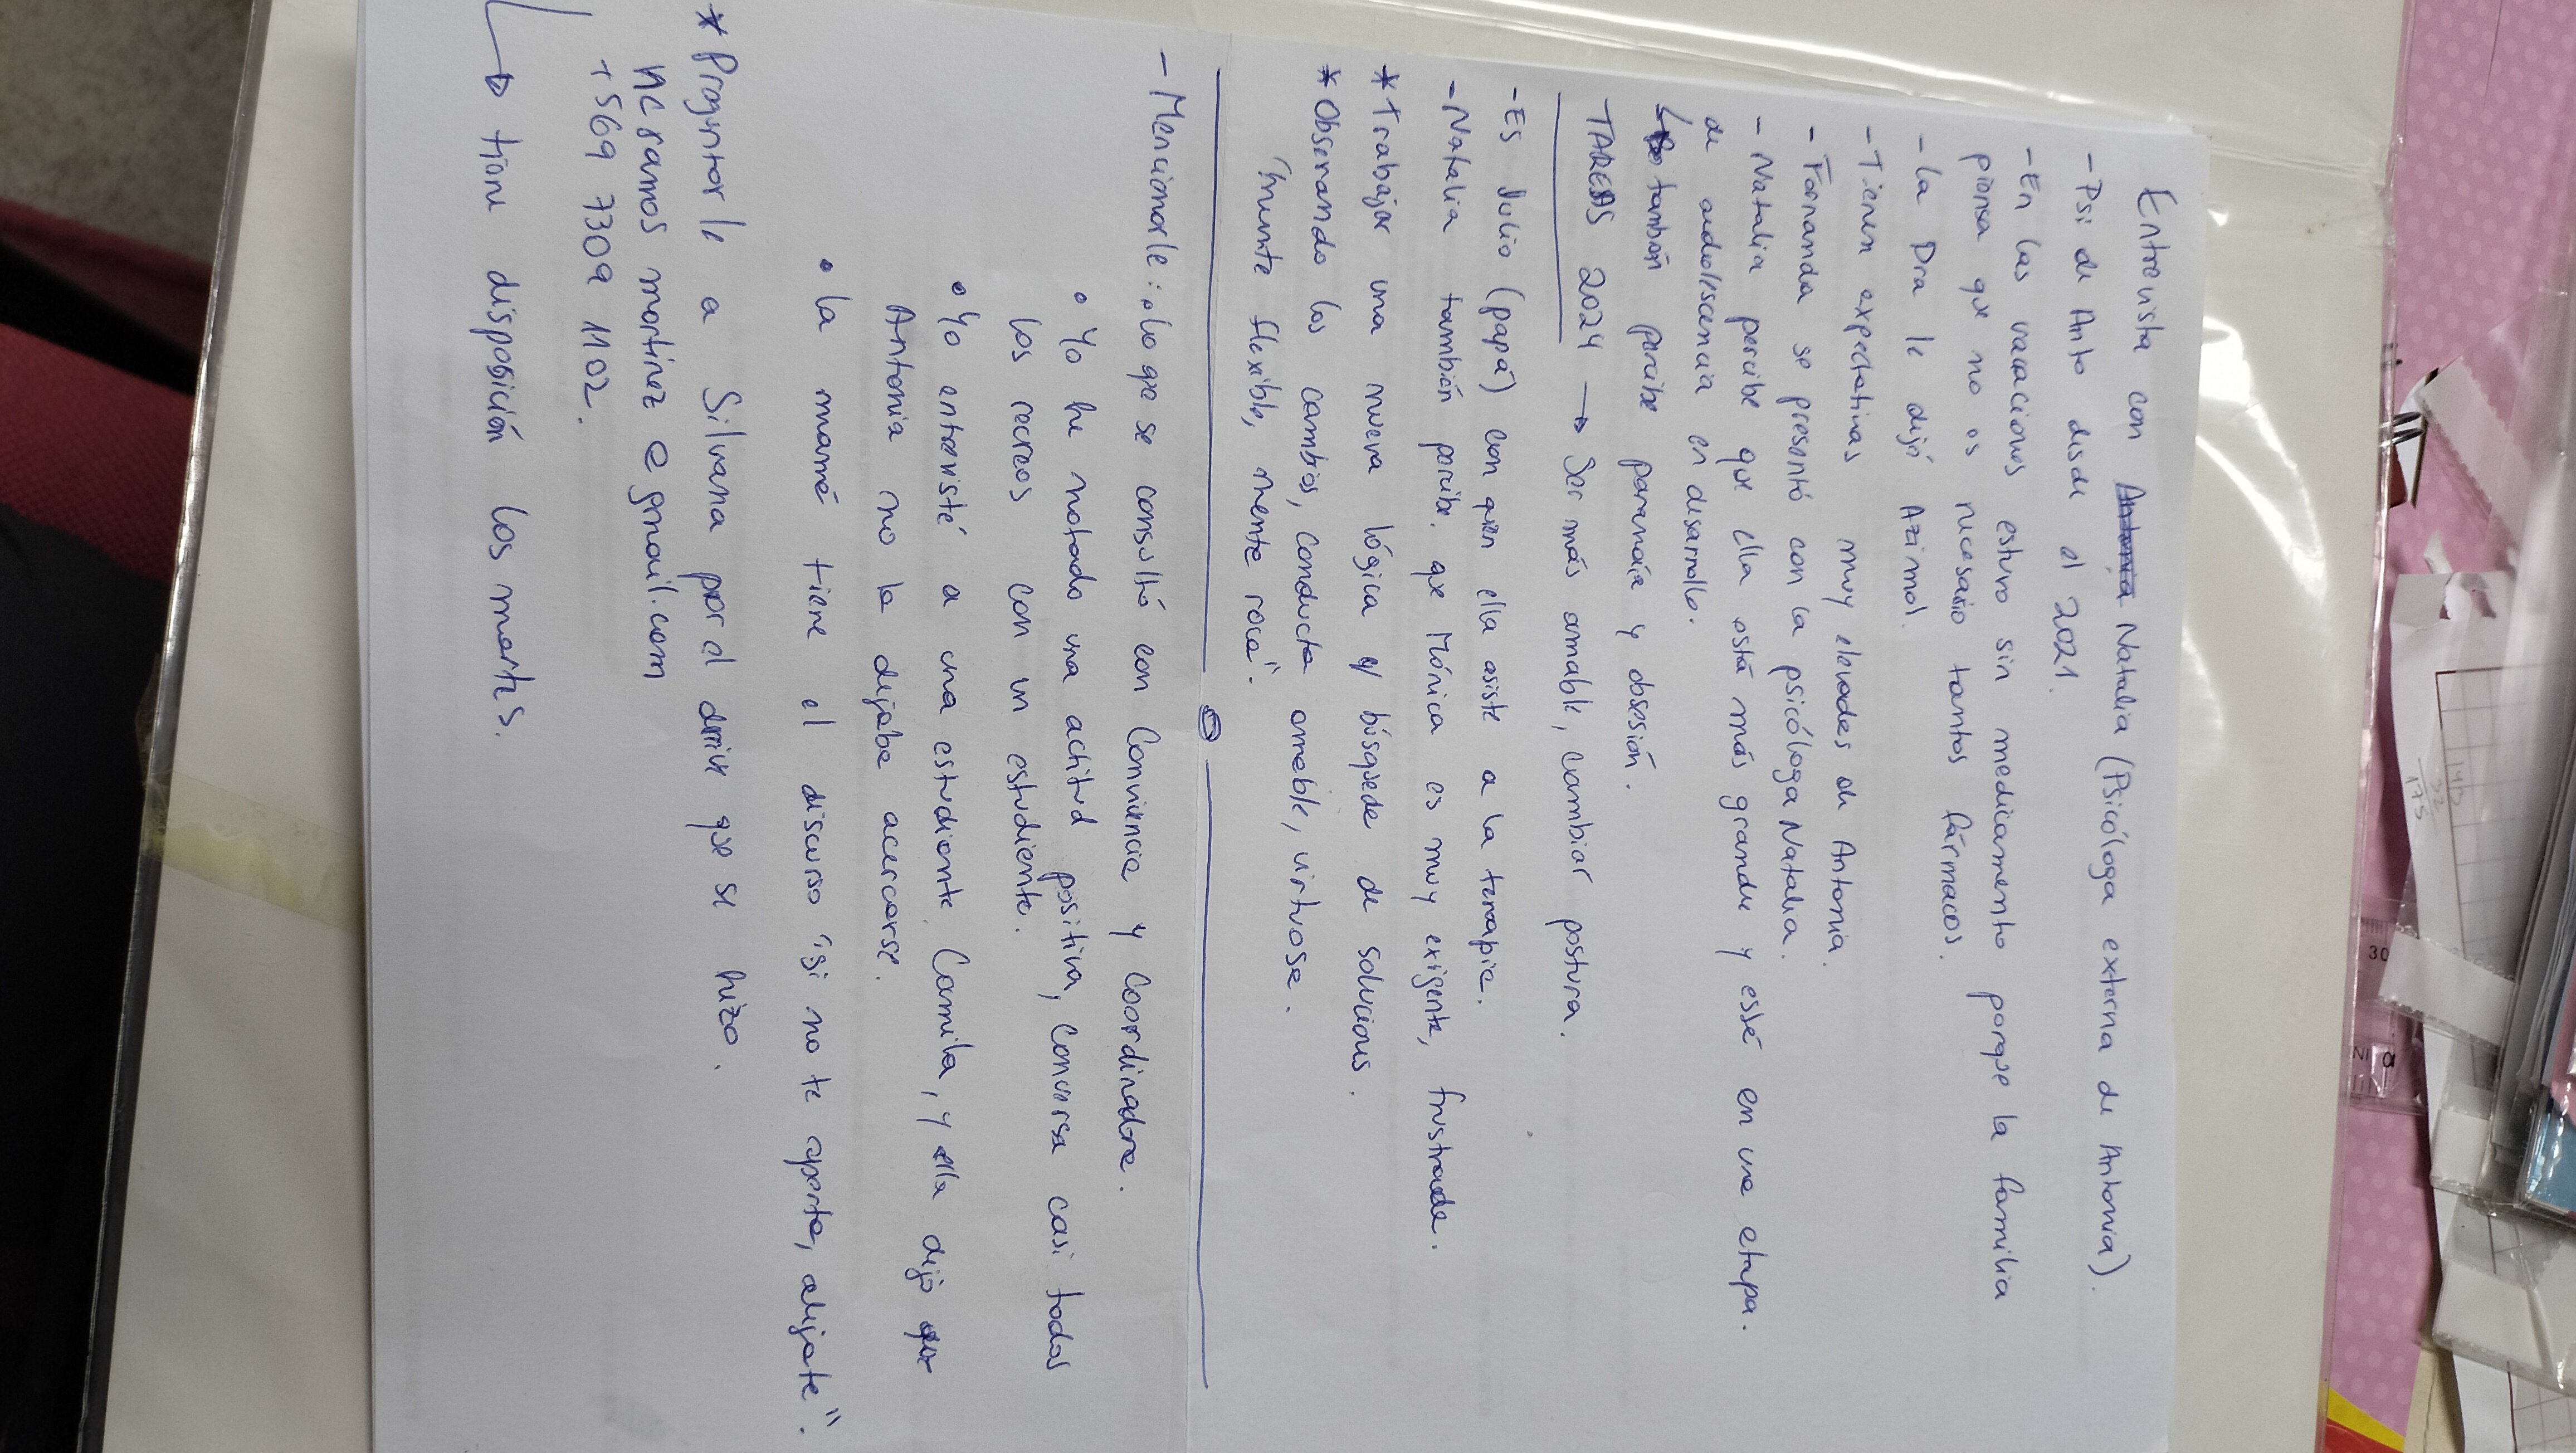 Entrevista con Antonia Natalia (Psicóloga externa de Antonia).
- Psi de Anto desde el 2021.
- En las vacaciones estuvo sin medicamento porque la familia
piensa que no es necesario tantos fármacos.
- La Dra le dejó Azimol.
- Tienen expectativas muy elevadas de Antonia.
- Fernanda se presentó con la psicóloga Natalia.
- Natalia percibe que ella está más grande y essé en una etapa
de adolescencia en desarrollo.
↳ también percibe paranoia y obsesión.
TAREAS 2024 → Ser más amable, cambiar postura.
- Es Julio (papá) con quien ella asiste a la terapia.
- Natalia también percibe que Mónica es muy exigente, frustrada.
* Trabajar una nueva lógica y búsqueda de soluciones.
* Observando los cambios, conducta amable, virtuosa.
"mente flexible, mente roca".
- Mencionarle: • lo que se consultó con Convivencia y Coordinadora.
• Yo he notado una actitud positiva, conversa casi todos
los recreos con un estudiente.
• Yo entrevisté a una estudiante Camila, y ella dijo que
Antonia no la dejaba acercarse.
• La mamá tiene el discurso "si no te aporta, aléjate".
* Preguntarle a Silvana por el drive que se hizo.
ncramosmartinez@gmail.com
+569 7309 1102.
↳ tiene disposición los martes.
30
143
32
175